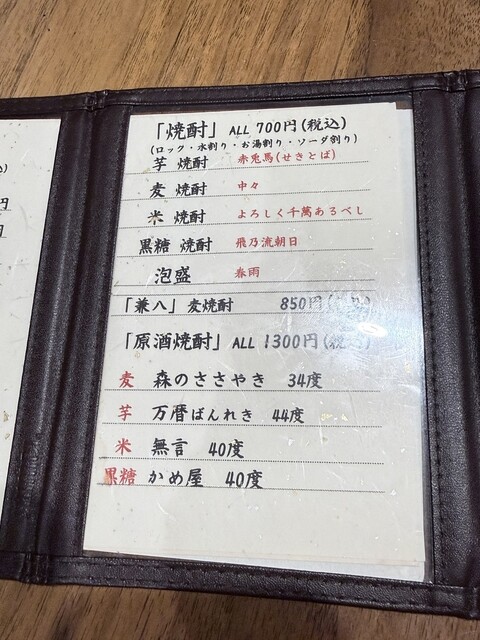 「焼酎」 ALL 700円(税込)
(ロック・水割り・お湯割り・ソーダ割り)
芋 焼酎 赤兎馬(せきとば)
麦 焼酎 中々
米 焼酎 よろしく千萬あるべし
黒糖 焼酎 飛乃流朝日
泡盛 春雨
「兼八」麦焼酎 850円
「原酒焼酎」 ALL 1300円(税込)
麦 森のささやき 34度
芋 万暦ばんれき 44度
米 無言 40度
黒糖 かめ屋 40度
円
円